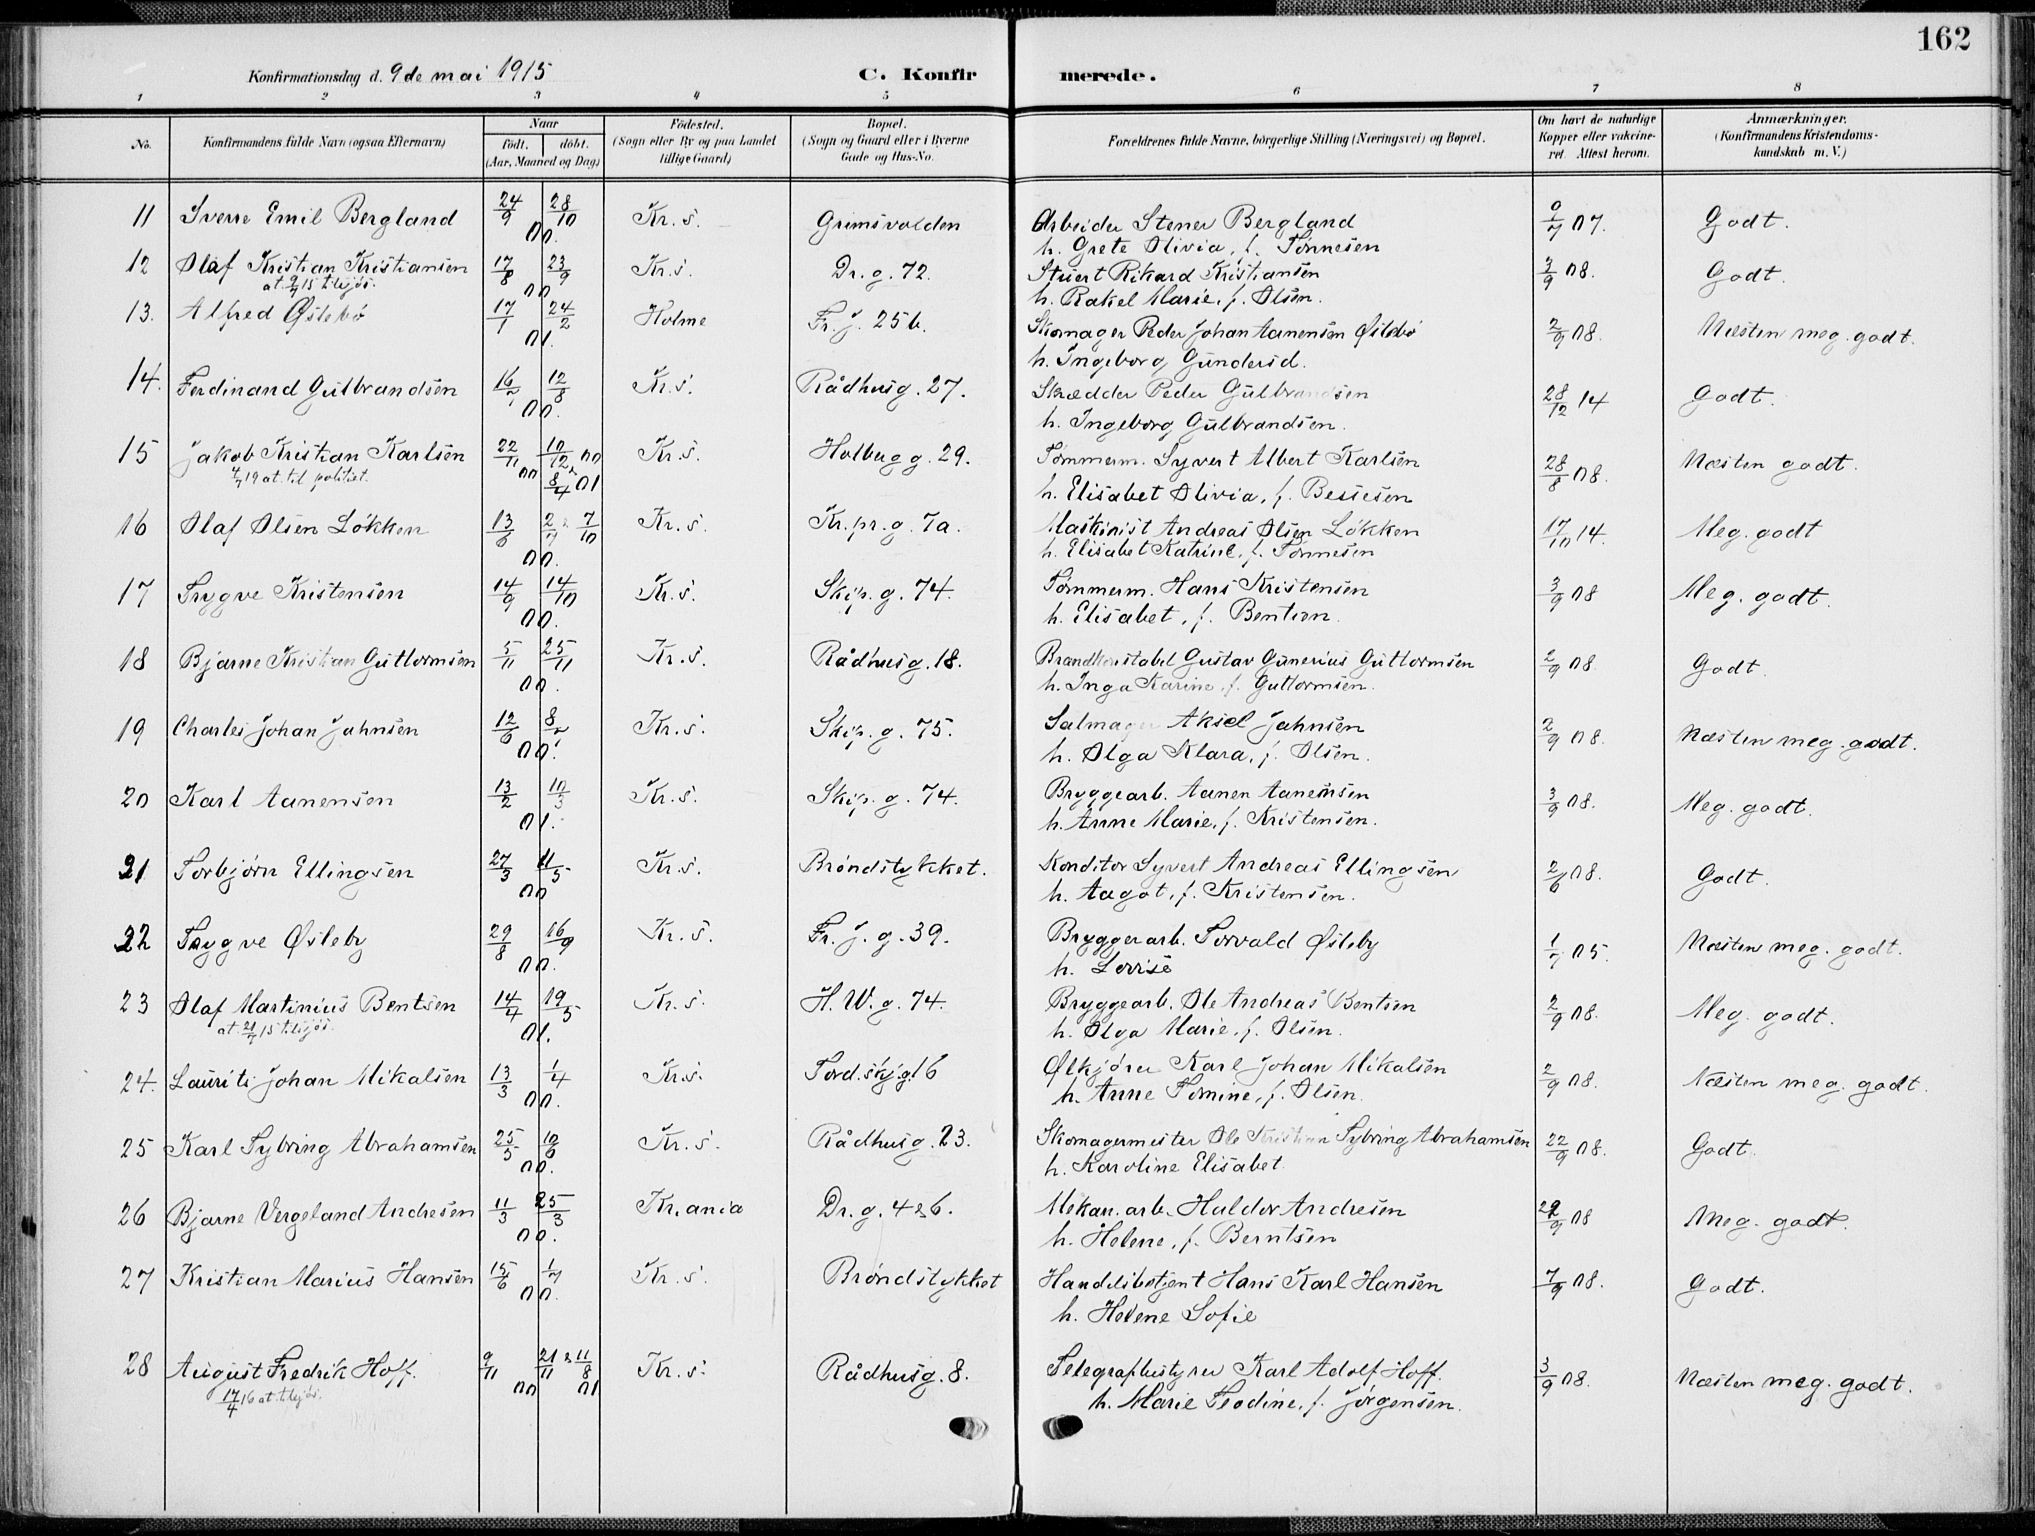 162
Konfirmationsdag d. 9de mai 1915 C. Konfir merede.
1 2 3 4 5 6 7 8
No. Konfirmandens fulde Navn (ogsaa Efternavn) Naar födt. döbt. (Aar, Maaned og Dag) Födested. (Sogn eller By og paa Landet tillige Gaard) Bopæl. (Sogn og Gaard eller i Byerne Gade og Hus-No. Forældrenes fulde Navne, borgerlige Stilling (Næringsvei) og Bopæl. Om havt de naturlige Kopper eller vakcineret. Attest herom. Anmærkninger. (Konfirmandens Kristendomskundskab m. V.)
11 Sverre Emil Bergland 24/9 28/10 00. Kr.s. Grimsvolden Arbeider Stener Bergland 0/7 07. Godt.
h. Grete Olivia, f. Tønnesen
12 Olaf Kristian Kristiansen 17/8 23/9 00 Kr.s. Dr.g. 72. Stuert Rikard Kristiansen 3/9 08. Godt.
at. 9/7 15 til sjøs. h. Rakel Marie, f. Olsen.
13. Alfred Øslebø 17/1 24/2 01. Holme Fr. J. 25 b. Skomager Peder Johan Aanensen Øslebø 2/9 08. Næsten meg. godt.
h. Ingeborg Gundersd.
14. Ferdinand Gulbrandsen 16/7 12/8 00. Kr.s. Rådhusg. 27. Skrædder Peder Gulbrandsen 28/12 14 Godt.
h. Ingeborg Gulbrandsen.
15 Jakob Kristian Karlsen 22/11 00 10/12 00 8/4 01 Kr.s. Holbugg. 29. Tømmerm. Syvert Albert Karlsen 28/8 08. Næsten godt.
4/7 19 at. til politiet. h. Elisabet Olivia, f. Bessesen
16 Olaf Olsen Løkken 13/6 2/7 & 7/10 00. Kr.s. Kr.pr.g. 7a. Maskinist Andreas Olsen Løkken 17/10 14. Meg. godt
h. Elisabet Katrine, f. Tønnesen
17 Trygve Kristensen 14/9 14/10 00. Kr.s. Skip.g. 74. Tømmerm. Hans Kristensen 3/9 08 Meg. godt.
h. Elisabet, f. Bentsen.
18 Bjarne Kristian Guttormsen 5/11 25/11 00. Kr.s. Rådhusg. 18. Brandkonstabel Gustav Gunerius Guttormsen 2/9 08. Godt.
h. Inga Karine, f. Guttormsen.
19 Charles Johan Jahnsen 12/6 8/7 00. Kr.s. Skip.g. 75. Salmager Aksel Jahnsen 2/9 08. Næsten meg. godt.
h. Olga Klara, f. Olsen.
20 Karl Aanensen 13/2 10/3 01. Kr.s. Skip.g. 74. Bryggearb. Aanen Aanensen 3/9 08. Meg. godt.
h. Anne Marie, f. Kristensen.
21 Torbjørn Ellingsen 27/3 11/5 00 Kr.s. Brøndstykket. Konditor Syvert Andreas Ellingsen 2/6 08. Godt.
h. Aagot, f. Kristensen.
22 Trygve Øsleby 29/8 16/9 00. Kr.s. Fr. J. g. 39. Bryggerarb. Torvald Øsleby 1/7 05. Næsten meg. godt.
h. Lovise
23 Olaf Martinius Bentsen 14/4 19/5 01. Kr.s. H.W.g. 74. Bryggearb. Ole Andreas Bentsen 2/9 08. Meg. godt.
at. 21/7 15 til sjøs. h. Olga Marie, f. Olsen.
24. Laurits Johan Mikalsen 13/3 1/4 00. Kr.s. Tord.skj.g. 16 Ølkjører Karl Johan Mikalsen 2/9 08. Næsten meg. godt.
h. Anne Tomine, f. Olsen.
25 Karl Sybring Abrahamsen 25/5 10/6 00. Kr.s. Rådhusg. 23. Skomagermester Ole Kristian Sybring Abrahamsen 22/9 08. Godt.
h. Karoline Elisabet.
26 Bjarne Vergeland Andresen 11/3 25/3 00. Kr.ania Dr.g. 4 & 6. Mekan. arb. Haldor Andresen 22/9 08 Meg. godt.
h. Helene, f. Berntsen
27 Kristian Marius Hansen 15/6 1/7 00. Kr.s. Brøndstykket Handelsbetjent Hans Karl Hansen 7/9 08. Godt.
h. Helene Sofie
28 August Fredrik Hoff. 9/11 00 21/11 & 11/8 01 Kr.s. Rådhusg. 8. Telegrafbestyrer Karl Adolf Hoff. 3/9 08. Næsten meg. godt.
17/4 16 at. til sjøs. h. Marie Teodine, f. Jørgensen.